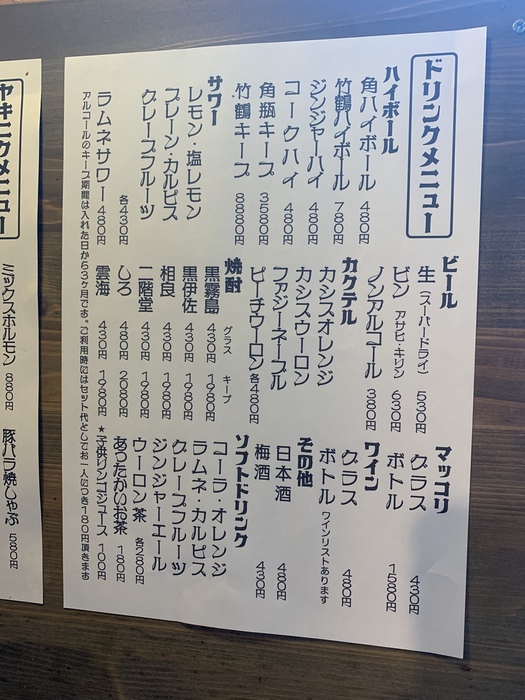 ドリンクメニュー
ハイボール
角ハイボール 480円
竹鶴ハイボール 780円
ジンジャーハイ 480円
コークハイ 480円
角瓶キープ 3580円
竹鶴キープ 8880円
サワー
レモン・塩レモン
プレーン・カルピス
グレープフルーツ
各430円
ラムネサワー 480円
アルコールのキープ期間は入れた日から3ヶ月です。ご利用時にはセット代としてお一人につき180円頂きます
ビール
生(スーパードライ) 530円
ビン アサヒ・キリン 630円
ノンアルコール 380円
カクテル
カシスオレンジ
カシスウーロン
ファジーネーブル
ピーチウーロン 各480円
焼酎 グラス キープ
黒霧島 430円 1980円
黒伊佐 430円 1980円
相良 430円 1980円
二階堂 430円 1980円
しろ 480円 2080円
雲海 430円 1980円
マッコリ
グラス 430円
ボトル 1580円
ワイン
グラス 480円
ボトル ワインリストあります
その他
日本酒 480円
梅酒 430円
ソフトドリンク
コーラ・オレンジ
ラムネ・カルピス
グレープフルーツ
ジンジャーエール
ウーロン茶 各280円
あったかいお茶 180円
★子供リンゴジュース 100円
ヤキニクメニュー
ミックスホルモン 880円
豚バラ焼しゃぶ 580円